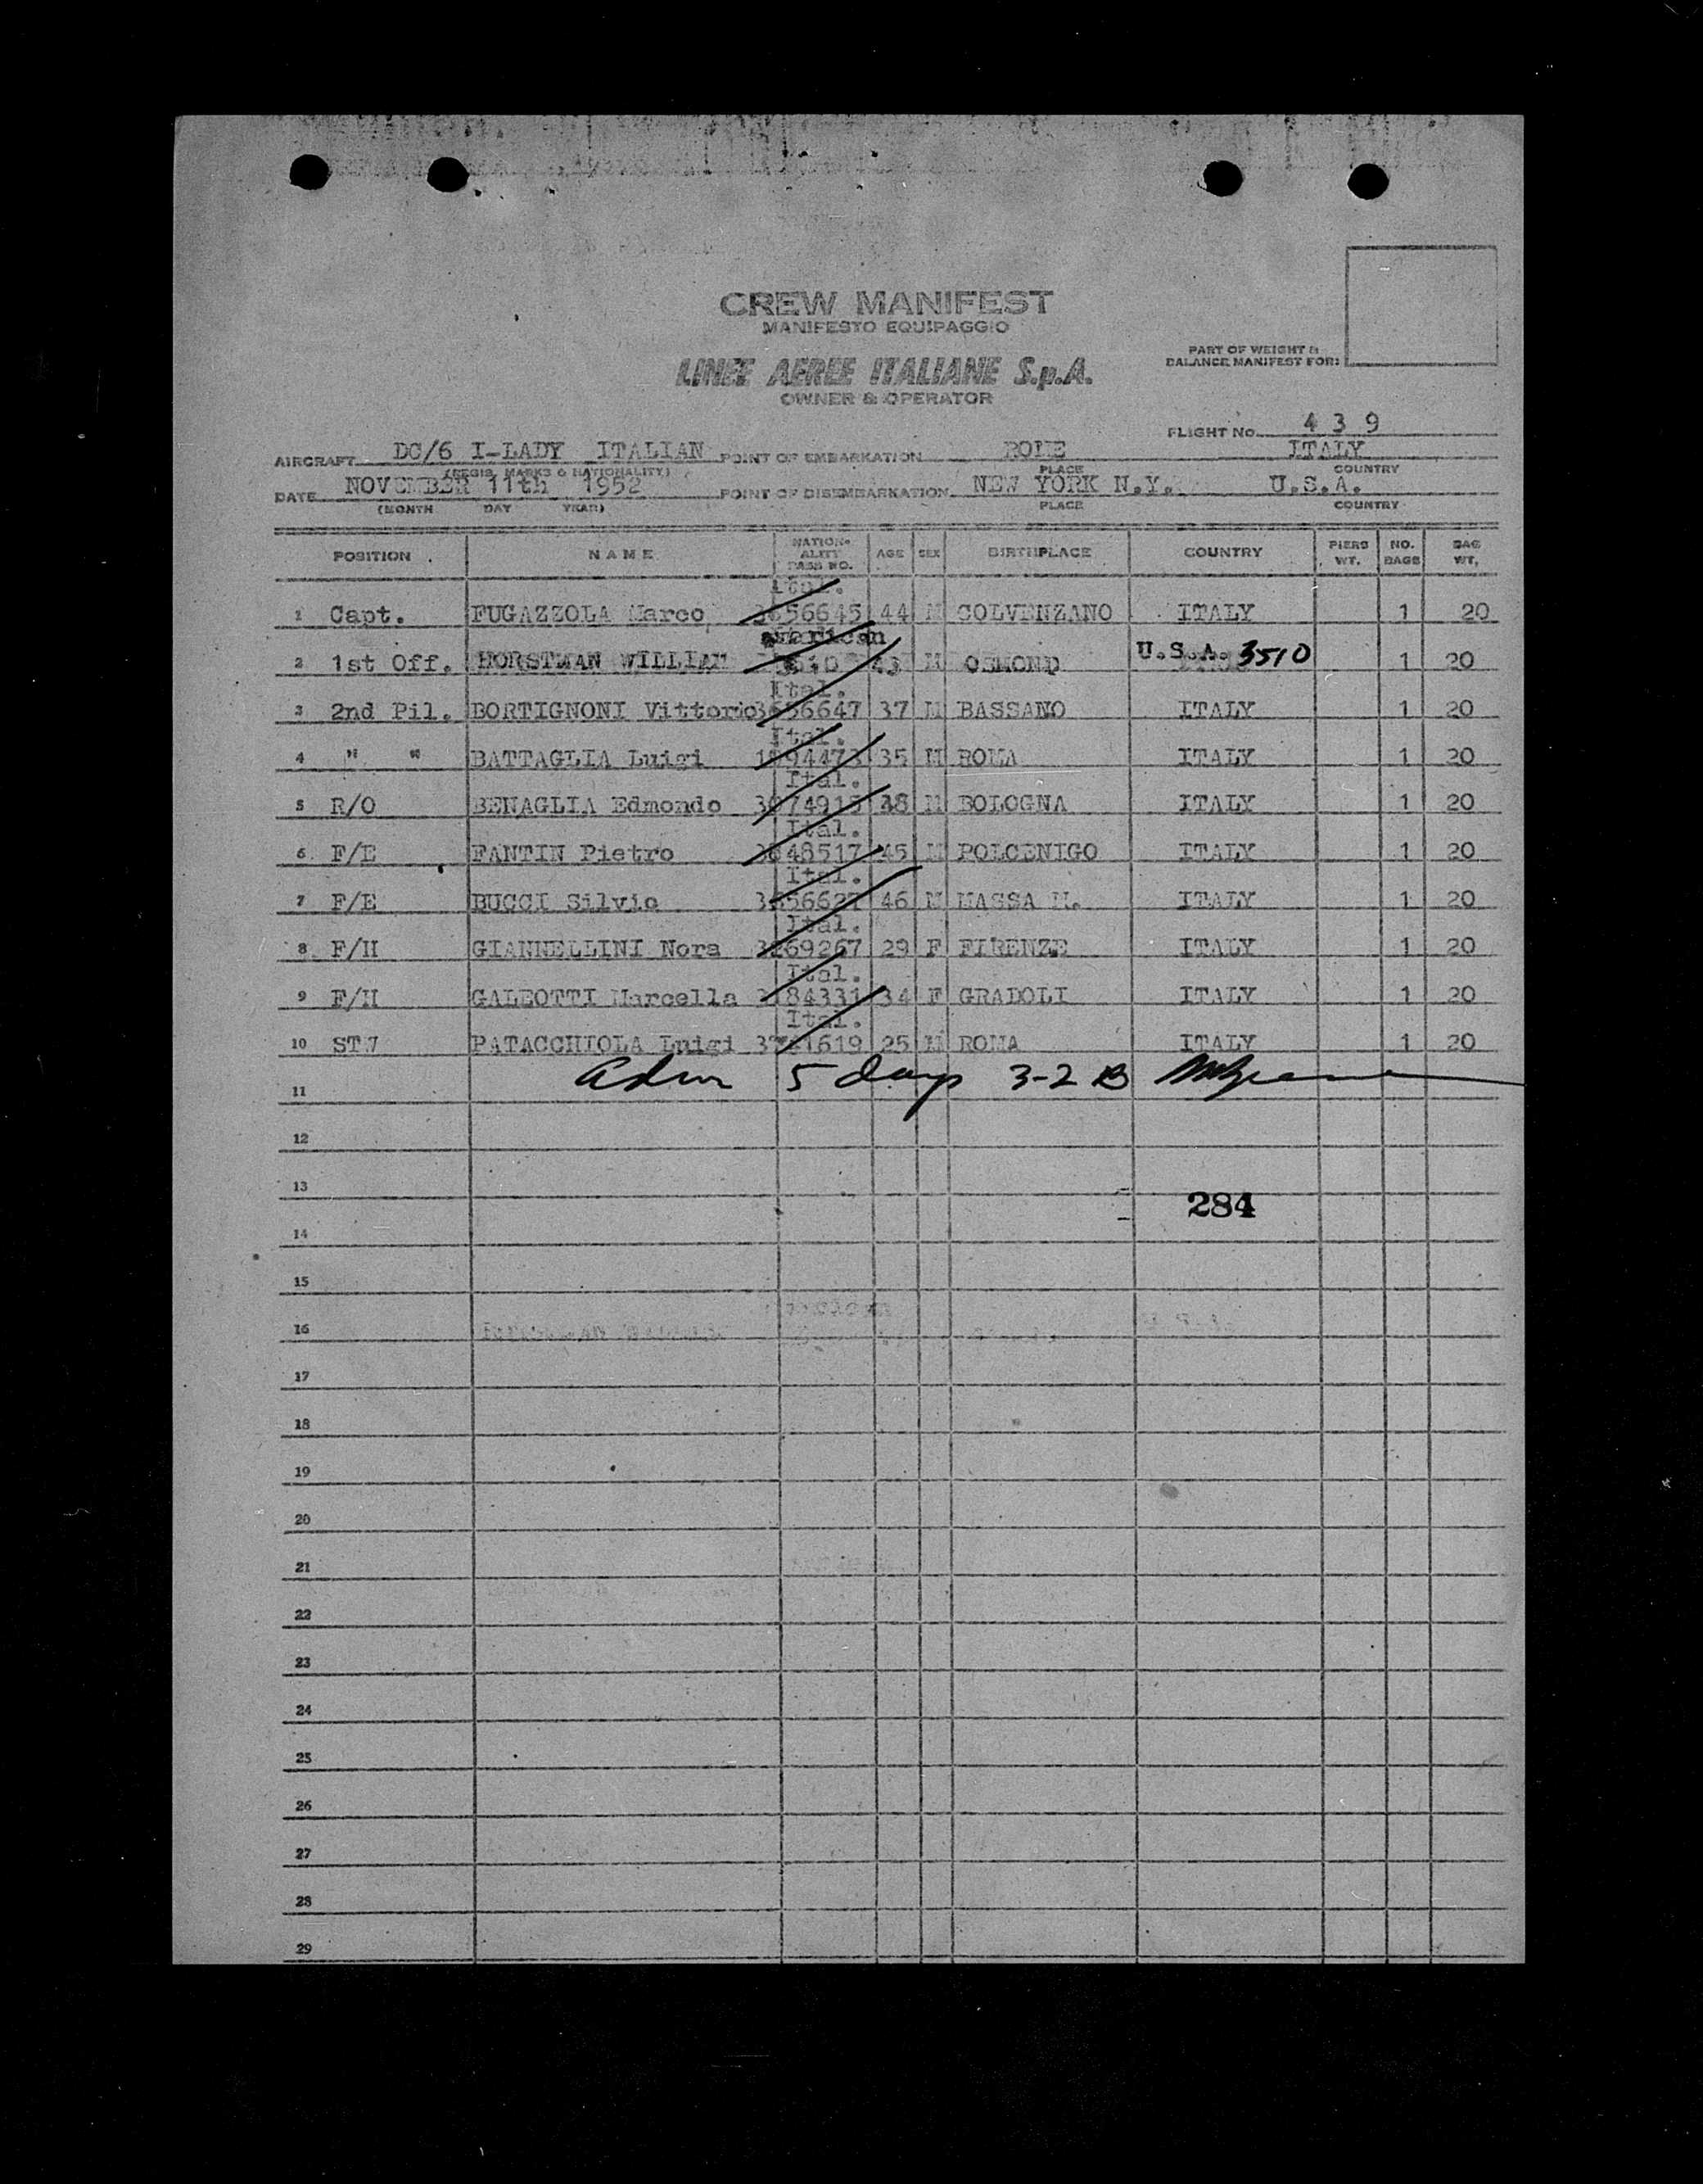 CREW MANIFEST
MANIFESTO EQUIPAGGIO
LINEE AEREE ITALIANE S.p.A.
OWNER & OPERATOR
PART OF WEIGHT &
BALANCE MANIFEST FOR:
FLIGHT No. 4 3 9
AIRCRAFT DC/6 I-LADY ITALIAN POINT OF EMBARKATION ROME ITALY
(REGIS. MARKS & NATIONALITY) PLACE COUNTRY
DATE NOVEMBER 11th 1952 POINT OF DISEMBARKATION NEW YORK N.Y. U.S.A.
(MONTH DAY YEAR) PLACE COUNTRY
POSITION NAME NATION-ALITY PASS NO. AGE SEX BIRTHPLACE COUNTRY PIERS WT. NO. BAGS BAG WT.
Ital.
1 Capt. FUGAZZOLA Marco 3656645 44 M COLVENZANO ITALY 1 20
american
2 1st Off. HORSTMAN WILLIAM 43 M OSMOND U.S.A. 3510 1 20
Ital.
3 2nd Pil. BORTIGNONI Vittorio 3656647 37 M BASSANO ITALY 1 20
Ital.
4 " " BATTAGLIA Luigi 94473 35 M ROMA ITALY 1 20
Ital.
5 R/O BENAGLIA Edmondo 74915 48 M BOLOGNA ITALY 1 20
Ital.
6 F/E FANTIN Pietro 48517 45 M POLCENIGO ITALY 1 20
Ital.
7 F/E BUCCI Silvio 3656627 46 M MASSA M. ITALY 1 20
Ital.
8 F/H GIANNELLINI Nora 69267 29 F FIRENZE ITALY 1 20
Ital.
9 F/H GALEOTTI Marcella 84331 34 F GRADOLI ITALY 1 20
Ital.
10 STW PATACCHIOLA Luigi 41619 25 M ROMA ITALY 1 20
11 Adm 5 days 3-2 B
12
13 284
14
15
16
17
18
19
20
21
22
23
24
25
26
27
28
29